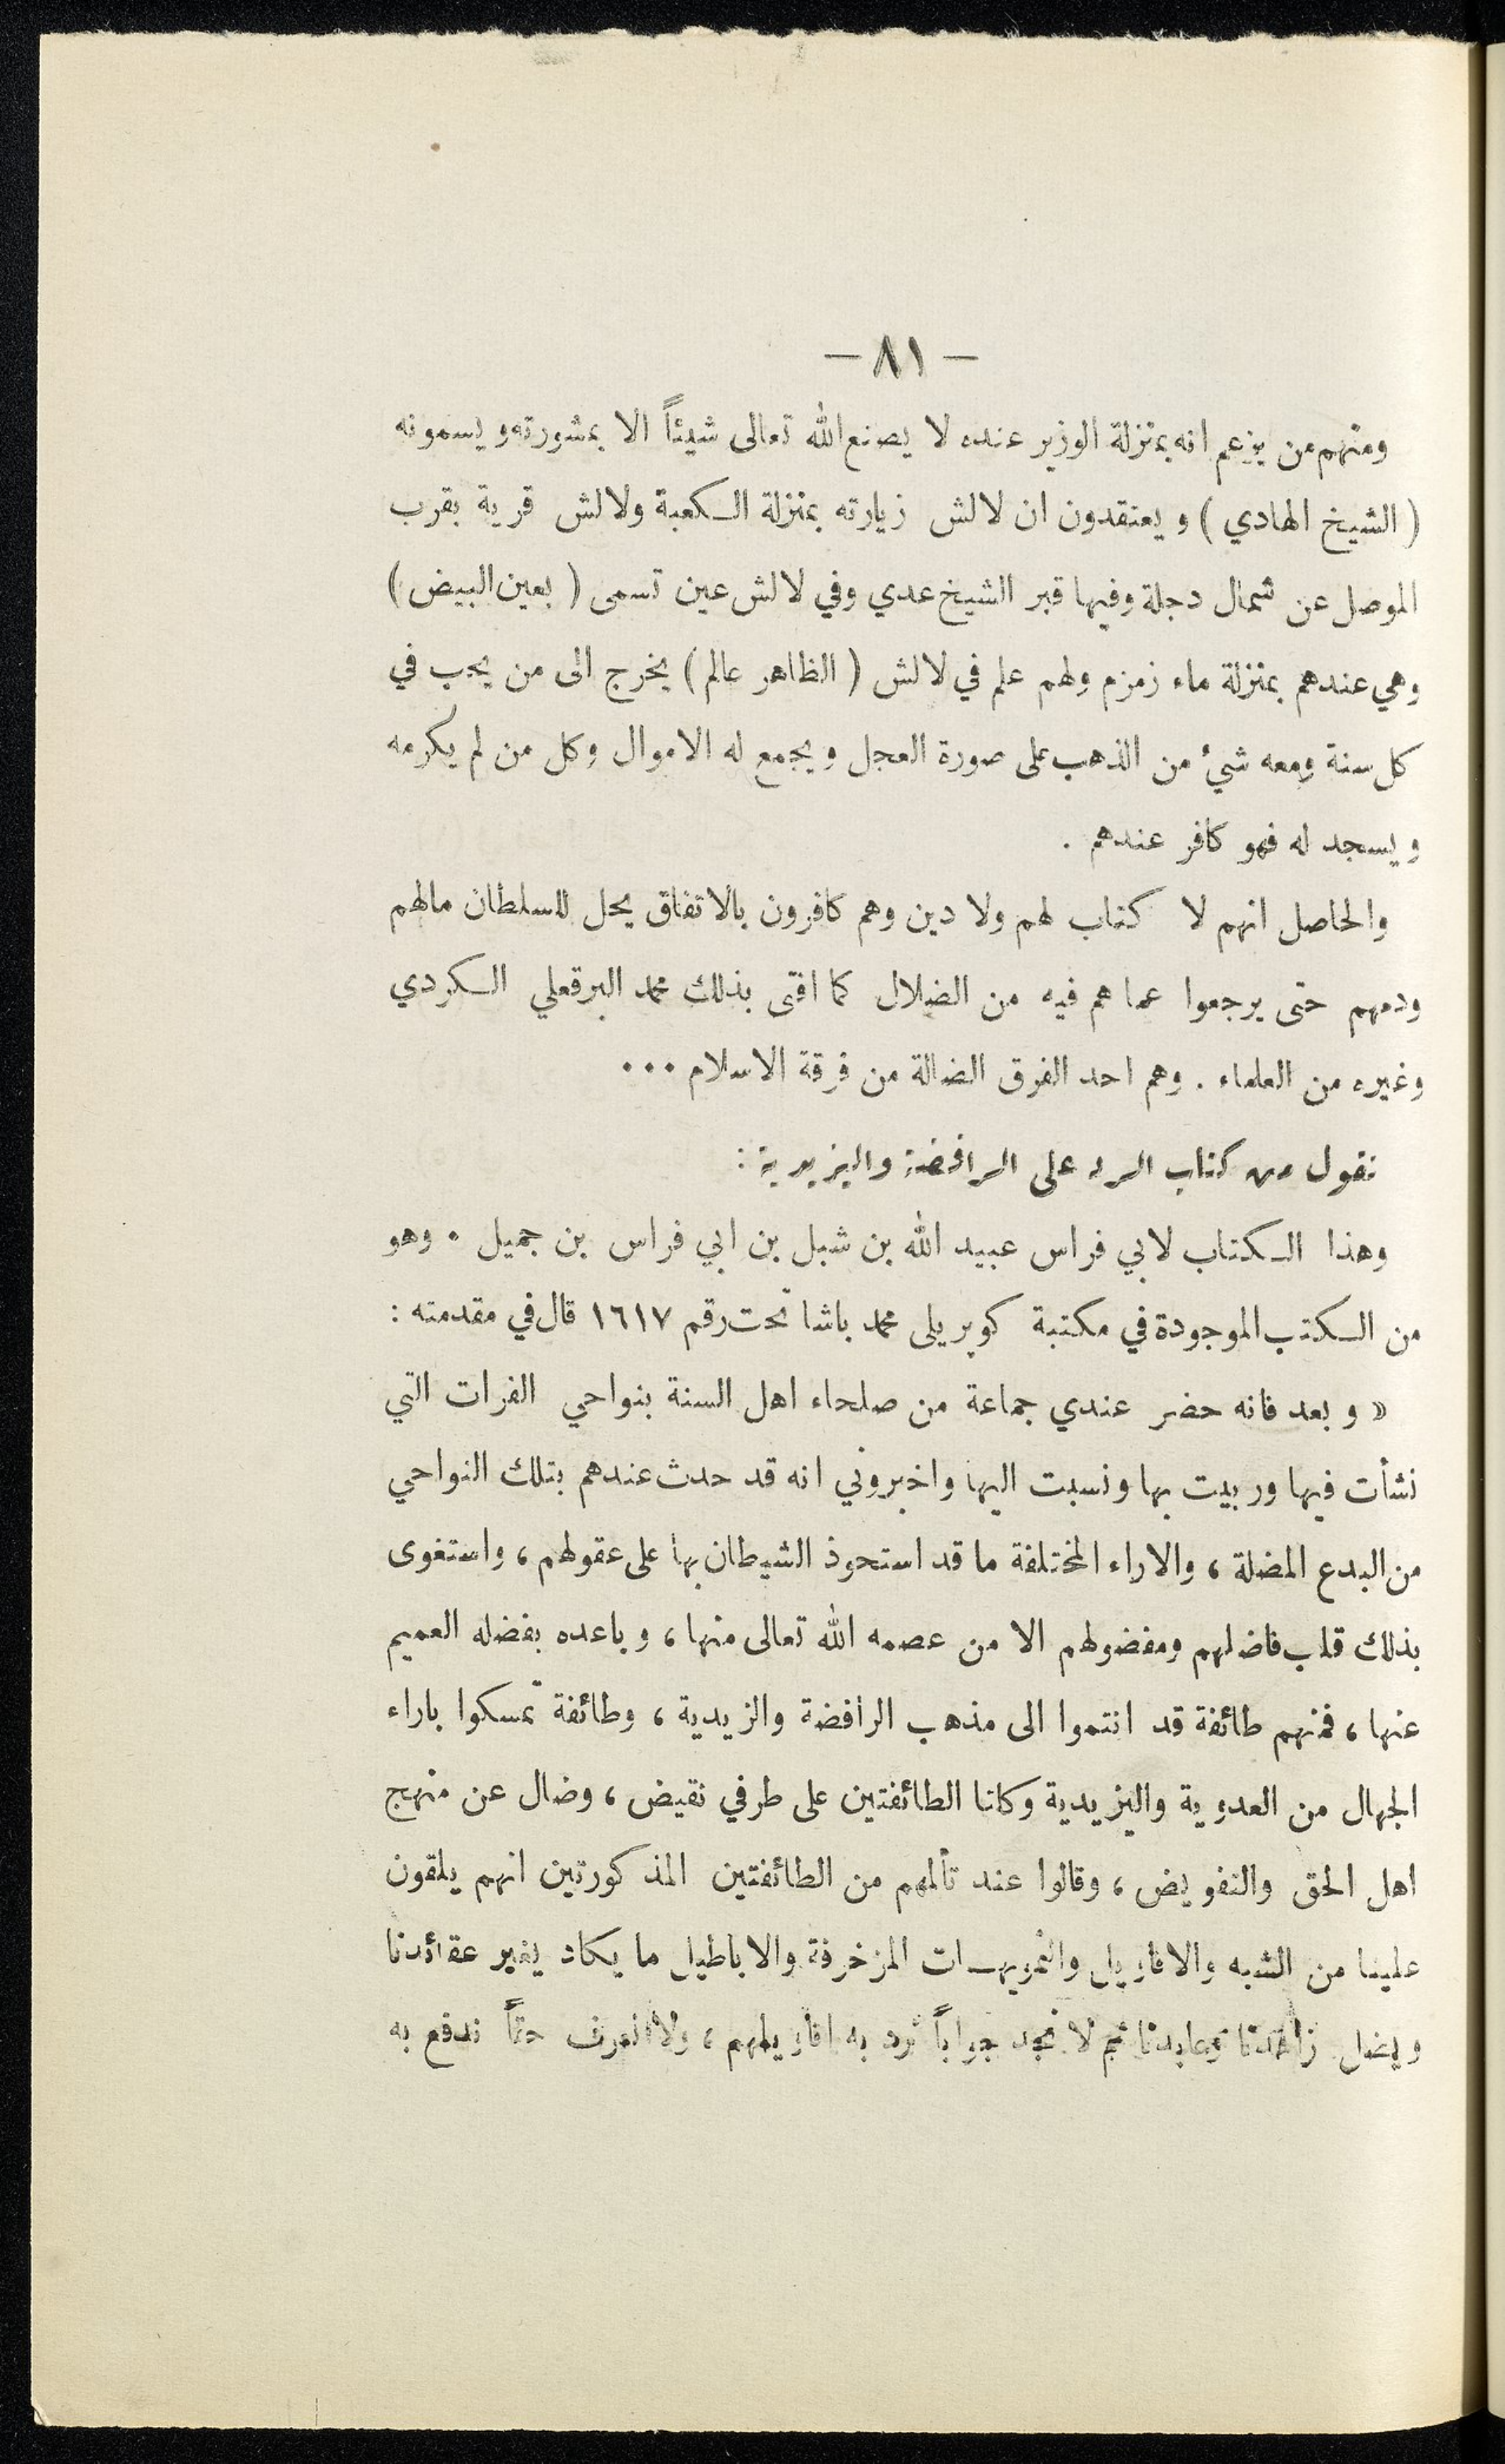 — ٨١ —
ومنهم من يزعم انه بمنزلة الوزير عنده لا يصنع الله تعالى شيئاً الا بمشورته ويسمونه
( الشيخ الهادي ) ويعتقدون ان لالش زيارته بمنزلة الكعبة ولالش قرية بقرب
الموصل عن شمال دجلة وفيها قبر الشيخ عدي وفي لالش عين تسمى ( بعين البيض )
وهي عندهم بمنزلة ماء زمزم ولهم علم في لالش ( الظاهر عالم ) يخرج الى من يحب في
كل سنة ومعه شيء من الذهب على صورة العجل ويجمع له الاموال وكل من لم يكرمه
ويسجد له فهو كافر عندهم .
والحاصل انهم لا كتاب لهم ولا دين وهم كافرون بالاتفاق يحل للسلطان مالهم
ودمهم حتى يرجعوا عما هم فيه من الضلال كما افتى بذلك محمد البرقعلي الكردي
وغيره من العلماء . وهم احد الفرق الضالة من فرقة الاسلام ...
نقول من كتاب الرد على الرافضة واليزيدية :
وهذا الكتاب لابي فراس عبيد الله بن شبل بن ابي فراس بن جميل . وهو
من الكتب الموجودة في مكتبة كوبريلى محمد باشا تحت رقم ١٦١٧ قال في مقدمته :
« وبعد فانه حضر عندي جماعة من صلحاء اهل السنة بنواحي الفرات التي
نشأت فيها وربيت بها ونسبت اليها واخبروني انه قد حدث عندهم بتلك النواحي
من البدع المضلة ، والاراء المختلفة ما قد استحوذ الشيطان بها على عقولهم ، واستغوى
بذلك قلب فاضلهم ومفضولهم الا من عصمه الله تعالى منها ، وباعده بفضله العميم
عنها ، فمنهم طائفة قد انتموا الى مذهب الرافضة والزيدية ، وطائفة تمسكوا باراء
الجهال من العدوية واليزيدية وكانا الطائفتين على طرفي نقيض ، وضال عن منهج
اهل الحق والتفويض ، وقالوا عند تألمهم من الطائفتين المذكورتين انهم يلقون
علينا من الشبه والاقاويل والتمويهات المزخرفة والاباطيل ما يكاد يغير عقائدنا
ويضل زاهدنا وعابدنا ثم لا نجد جواباً نرد به اقاويلهم ، ولا نعرف حقاً ندفع به